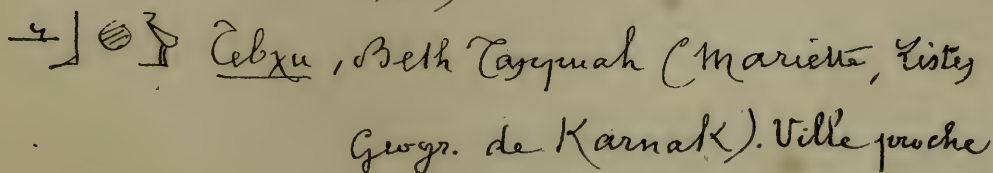 Tebχu, Beth Tappuah (Mariette, Listes
Geogr. de Karnak). Ville proche